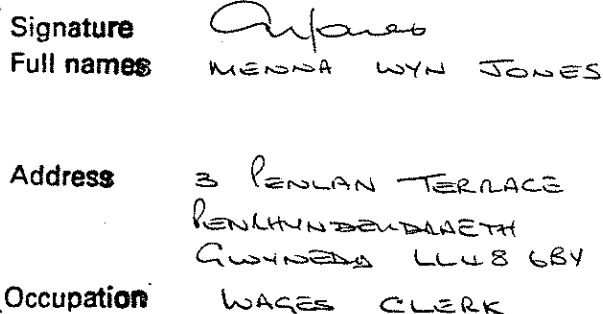 Signature
Full names MENNA WYN JONES
Address 3 PENLAN TERRACE
PENRHYNDEUDRAETH
GWYNEDD LL48 6BY
Occupation WAGES CLERK